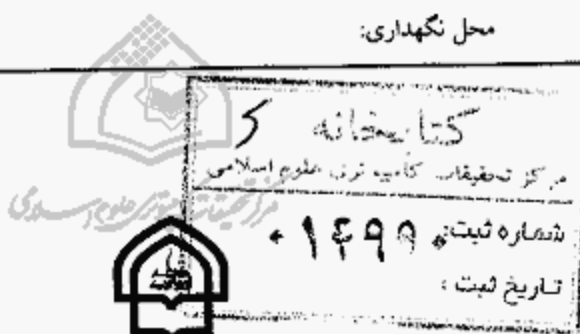 محل نگهداری:
کتابخانه
مرکز تحقیقات کامپیوتری علوم اسلامی
شماره ثبت: ۰۱۴۹۹۰
تاریخ ثبت:
مرکز تحقیقات کامپیوتری علوم اسلامی